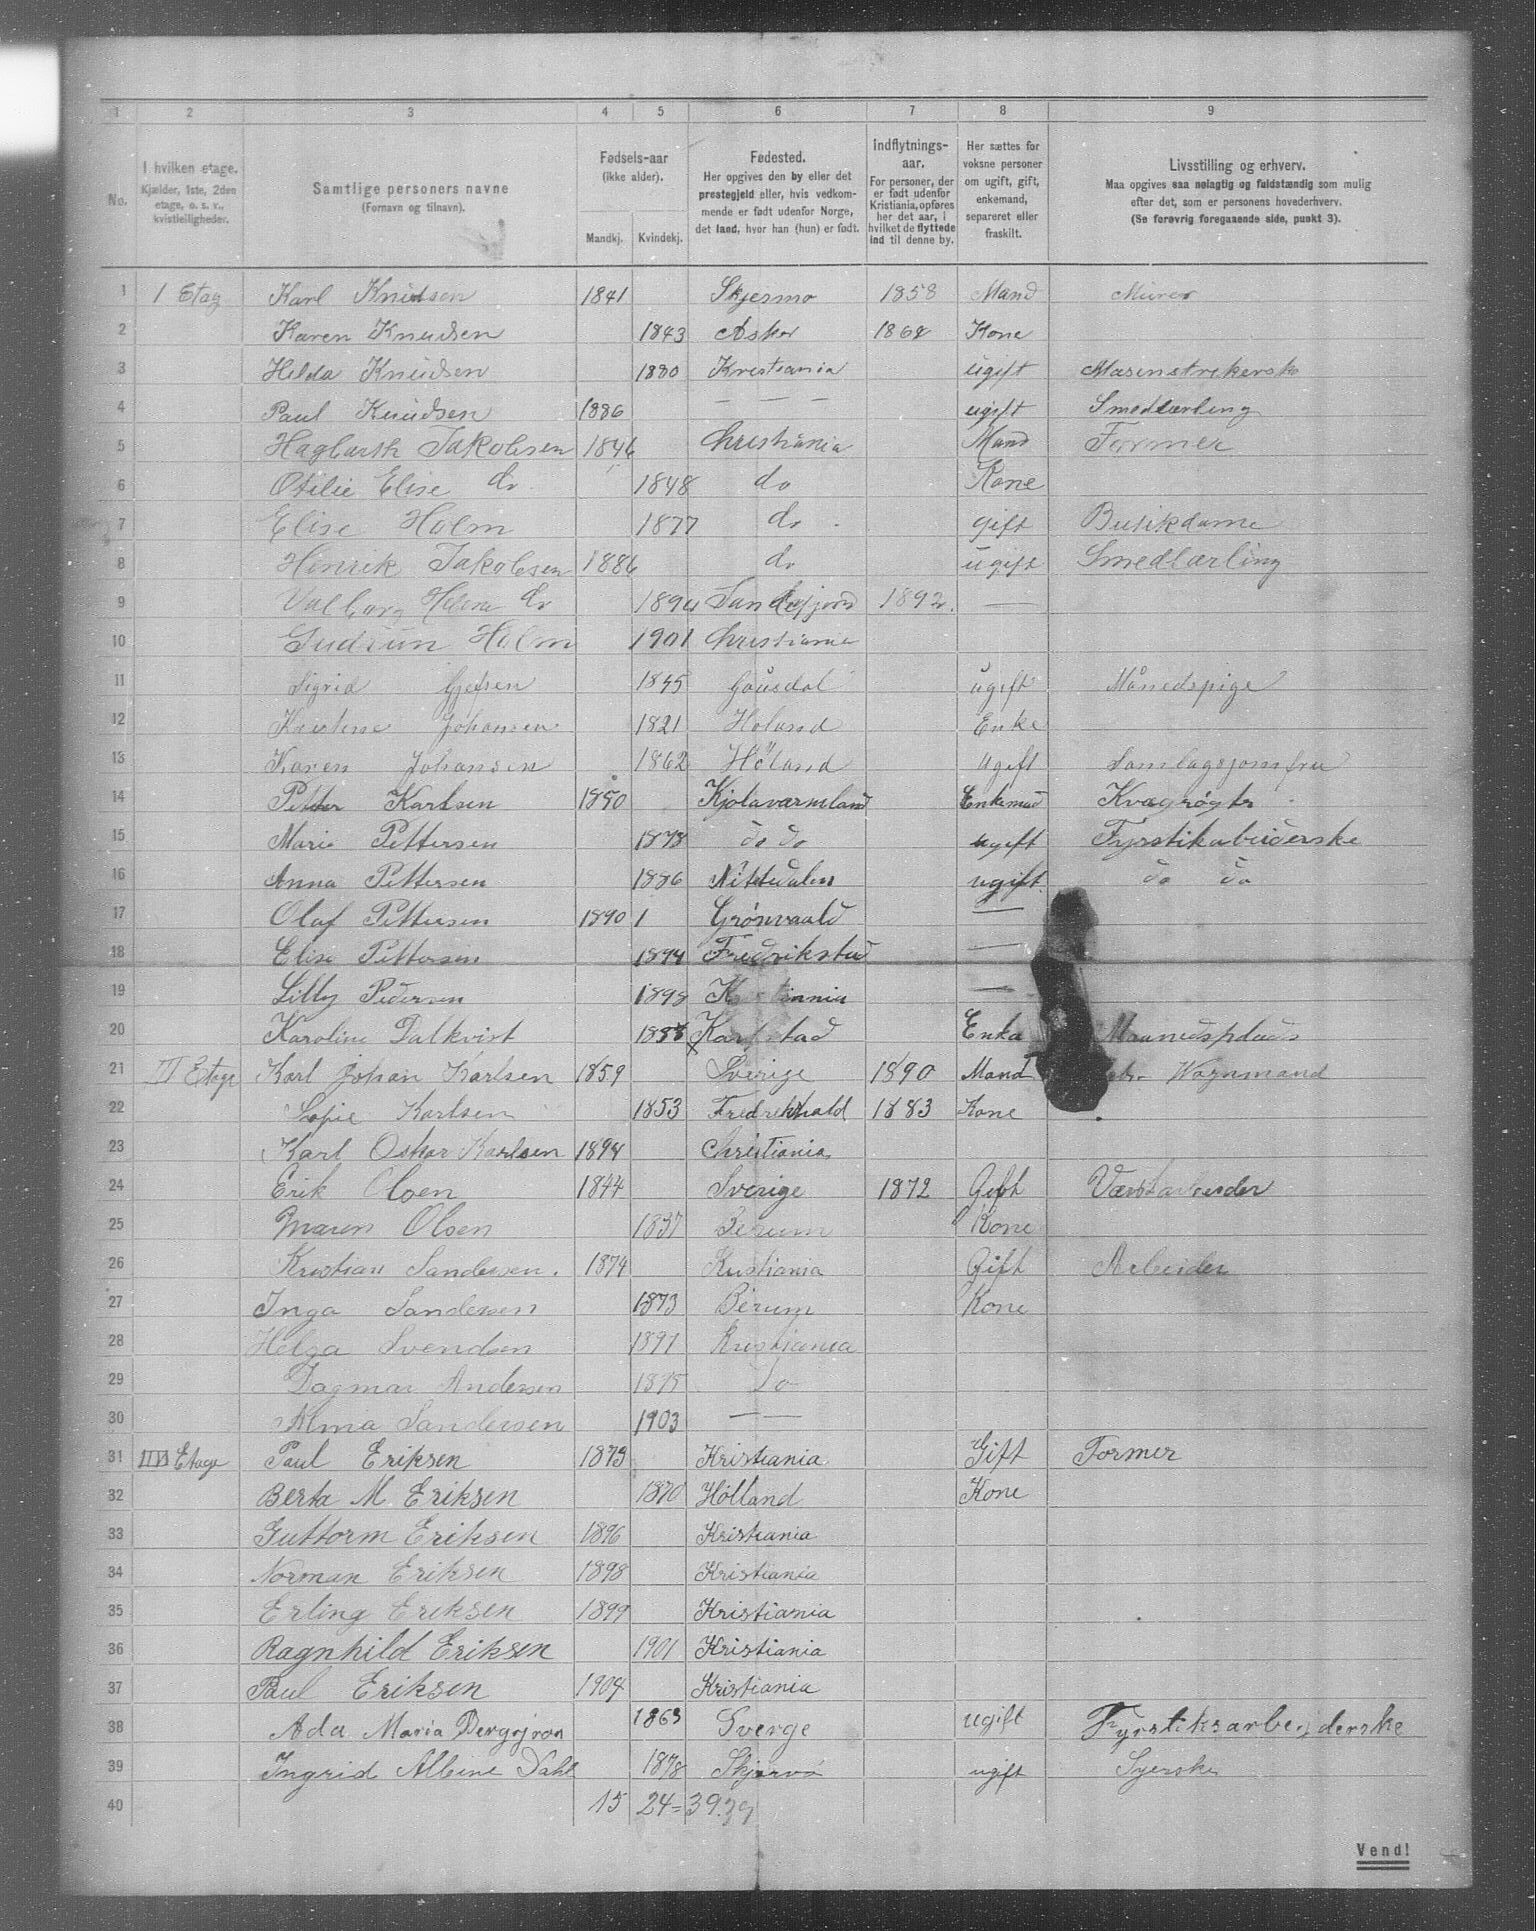 1 2 3 4 5 6 7 8 9
No.
I hvilken etage.
Kjælder, 1ste, 2den etage, o. s. v., kvistleiligheder.
Samtlige personers navne
(Fornavn og tilnavn).
Fødsels-aar
(ikke alder).
Mandkj. Kvindekj.
Fødested.
Her opgives den by eller det
prestegjeld eller, hvis vedkom-
mende er født udenfor Norge,
det land, hvor han (hun) er født.
Indflytnings-
aar.
For personer, der
er født udenfor
Kristiania, opføres
her det aar, i
hvilket de flyttede
ind til denne by.
Her sættes for
voksne personer
om ugift, gift,
enkemand,
separeret eller
fraskilt.
Livsstilling og erhverv.
Maa opgives saa nøiagtig og fuldstændig som mulig
efter det, som er personens hovederhverv.
(Se forøvrig foregaaende side, punkt 3).
1 I Etag Karl Knudsen 1841 Skjesmo 1858 Mand Murer
2 Karen Knudsen 1843 Asker 1868 Kone
3 Hilda Knudsen 1880 Kristiania ugift Masinstrikersk
4 Paul Knudsen 1886 — — — ugift Smedlærling
5 Hagbarth Jakobsen 1846 Christiania Mand Former
6 Otilie Elise do 1848 do Kone
7 Elise Holm 1877 do gift Butikdame
8 Henrik Jakobsen 1886 do ugift Smedlærling
9 Valborg Helene do 1890 Sandefjord 1892. —
10 Gudrun Holm 1901 Christiania
11 Sigrid 1845 Gausdal ugift Månedspige
12 Kristine Johansen 1821 Høland Enke
13 Karen Johansen 1862 Høland ugift Samlagsjomfru
14 Petter Karlsen 1850 Kjolavarmland Enkemad Kvægrøgtr
15 Marie Pettersen 1878 do do ugift Fyrstikabeiderske
16 Anna Pettersen 1886 Nittedalen ugift do do
17 Olaf Pettersen 1890 1 Grønvaald —
18 Elise Pettersen 1894 Fredrikstad —
19 Lilly Pedersen 1898 —
20 Karoline Dalkvist Karlstad Enka Maanedsplads
21 II Etage Karl Johan Karlsen 1859 Sverige 1890 Mand Wognmand
22 Sofie Karlsen 1853 Fredrikhald 1883 Kone
23 Karl Oskar Karlsen 1894 Christiania
24 Erik Olsen 1844 Sverige 1872 Gift Værkstarbeider
25 Maren Olsen 1837 Berum Kone
26 Kristian Sandersen. 1874 Kristiania Gift Arbeider
27 Inga Sandersen 1873 Berum Kone
28 Helga Svendsen 1897 Kristiania
29 Dagmar Andersen 1875 Do
30 Alma Sandersen 1903 — —
31 III Etage Paul Eriksen 1873 Kristiania Gift Former
32 Berta M. Eriksen 1870 Hölland Kone
33 Guttorm Eriksen 1896 Kristiania
34 Norman Eriksen 1898 Kristiania
35 Erling Eriksen 1899 Kristiania
36 Ragnhild Eriksen 1901 Kristiania
37 Paul Eriksen 1904 Kristiania
38 Ada Maria 1863 Sverge ugift Fyrstiksarbeiderske
39 Ingrid Albine Dahl 1878 Skjervö ugift Syerske
40 15 24 = 39.39
Vend!